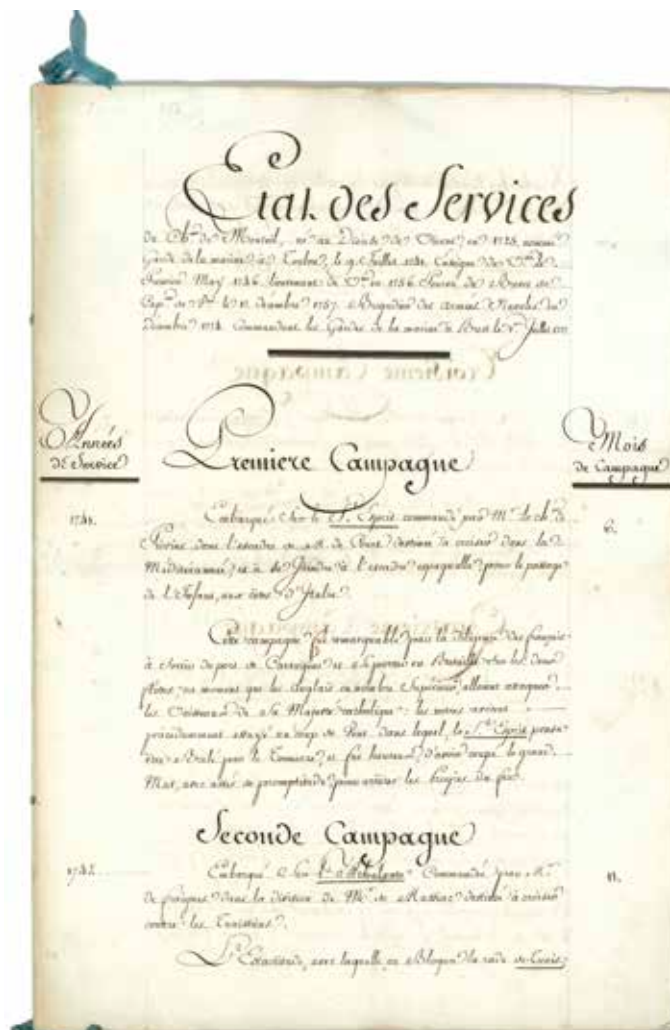 Etat des Services
du Ch.er de Monteil, né au Diocèse de en 1725, nommé
Garde de la marine à Toulon, le 9 Juillet 1741. Enseigne de V.au le
Premier May 1746. Lieutenant de V.au en 1756. de
Cap.ne de V.au le 15. décembre 1757. Brigadier des armées Navales en
décembre 1774. Commandant les Gardes de la marine à Brest le 1.er Juillet
Années
de Service
Premiere Campagne
Mois
de Campagne
1741.
Embarqué Sur le S.t Esprit commandé par M.r le ch.er de
Piosins dans l'escadre de M. de Court destinée à croiser dans la
Mediterrannée, et à se Joindre à l'escadre espagnolle pour le passage
de l'Infant, aux côtes d'Italie.
6.
Cette campagne fut remarquable par la diligence des français
à Sortir du port de et Se porter en Bataille entre les deux
flottes, au moment que les Anglais en nombre Supérieur, allaient attaquer
les Vaisseaux de Sa Majesté catholique: les notres avaient
précédemment essuyé un coup de Vent dans lequel, le S.t Esprit pensa
être par le Tonnerre, et fut heureux d'avoir coupé le grand
Mat, avec assés de promptitude pour arrêter les progrès du feu.
Seconde Campagne
1742.
Embarqué Sur Commandé par M.r
de dans la division de M.r de Massiac destinée à croiser
contre les Tunisiens.
11.
L'Estacade, avec laquelle on Bloquait la rade de Tunis,